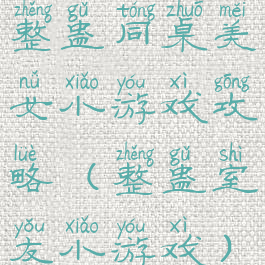 zhěng gǔ tóng zhuō měi
整蛊同桌美
nǚ xiǎo yóu xì gōng
女小游戏攻
lüè zhěng gǔ shì
略（整蛊室
yǒu xiǎo yóu xì
友小游戏）